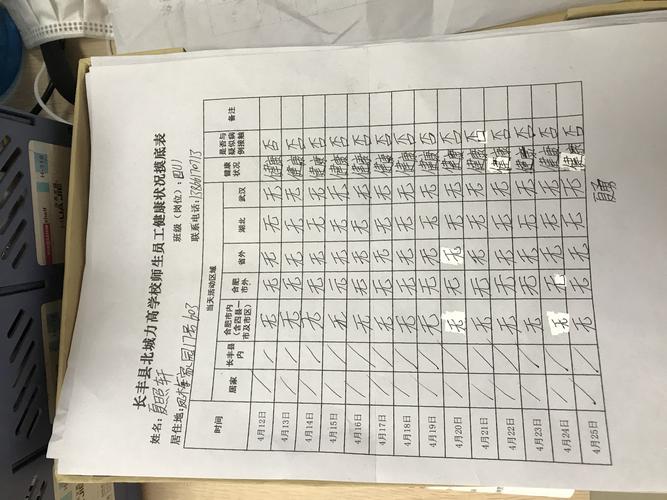 长丰县北城力高学校师生员工健康状况摸底表
姓名：夏照轩 班级（岗位）：四(1)
居住地：17号103 联系电话：
时间 当天活动区域 健康状况 是否与疑似病例接触 备注
居家 长丰县内 合肥市内（含四县一市及市区） 合肥市外 省外 湖北 武汉
4月12日 / / 无 无 无 无 无 健康 否
4月13日 / / 无 无 无 无 无 健康 否
4月14日 / / 无 无 无 无 无 健康 否
4月15日 / / 无 无 无 无 无 健康 否
4月16日 / / 无 无 无 无 无 健康 否
4月17日 / / 无 无 无 无 无 健康 否
4月18日 / / 无 无 无 无 无 健康 否
4月19日 / / 无 无 无 无 无 健康 否
4月20日 / / 无 无 无 无 无 健康 否
4月21日 / / 无 无 无 无 无 健康 否
4月22日 / / 无 无 无 无 无 健康 否
4月23日 / / 无 无 无 无 无 健康 否
4月24日 / / 无 无 无 无 无 健康 否
4月25日 /